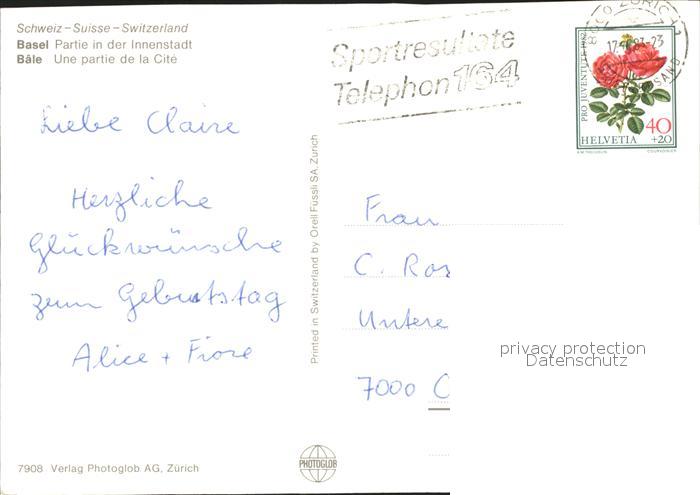 Schweiz – Suisse – Switzerland
Basel Partie in der Innenstadt
Bâle Une partie de la Cité
Sportresultate
Telephon 164
8000 ZÜRICH
17. 83-23
PRO JUVENTUTE 1982
40
+20
HELVETIA
COURVOISIER
Liebe Claire
Herzliche
Glückwünsche
zum Geburtstag
Alice + Fiore
Printed in Switzerland by Orell Füssli SA, Zurich
Frau
C. Ros
Untere
7000 C
privacy protection
Datenschutz
7908 Verlag Photoglob AG, Zürich
PHOTOGLOB